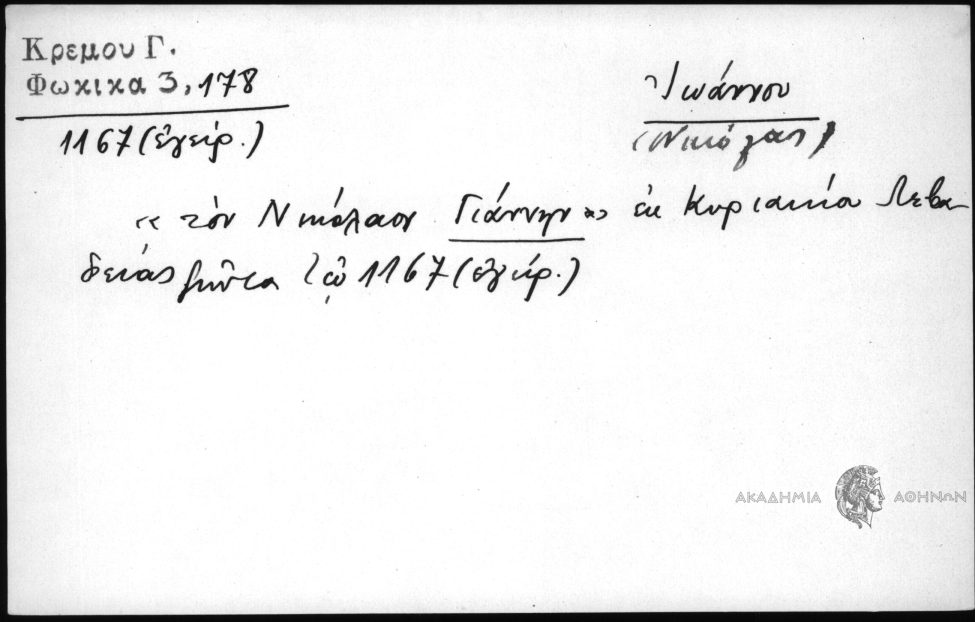 Κρεμου Γ.
Φωκικα 3, 178
1167 (ἐγείρ.)
Ἰωάννου
(Νικόλαος)
« τὸν Νικόλαον Γιάννην » ἐκ Κυριακίου Λεβα-
δείας ζῶντα τῷ 1167 (ἐγείρ.)
ΑΚΑΔΗΜΙΑ ΑΘΗΝΩΝ